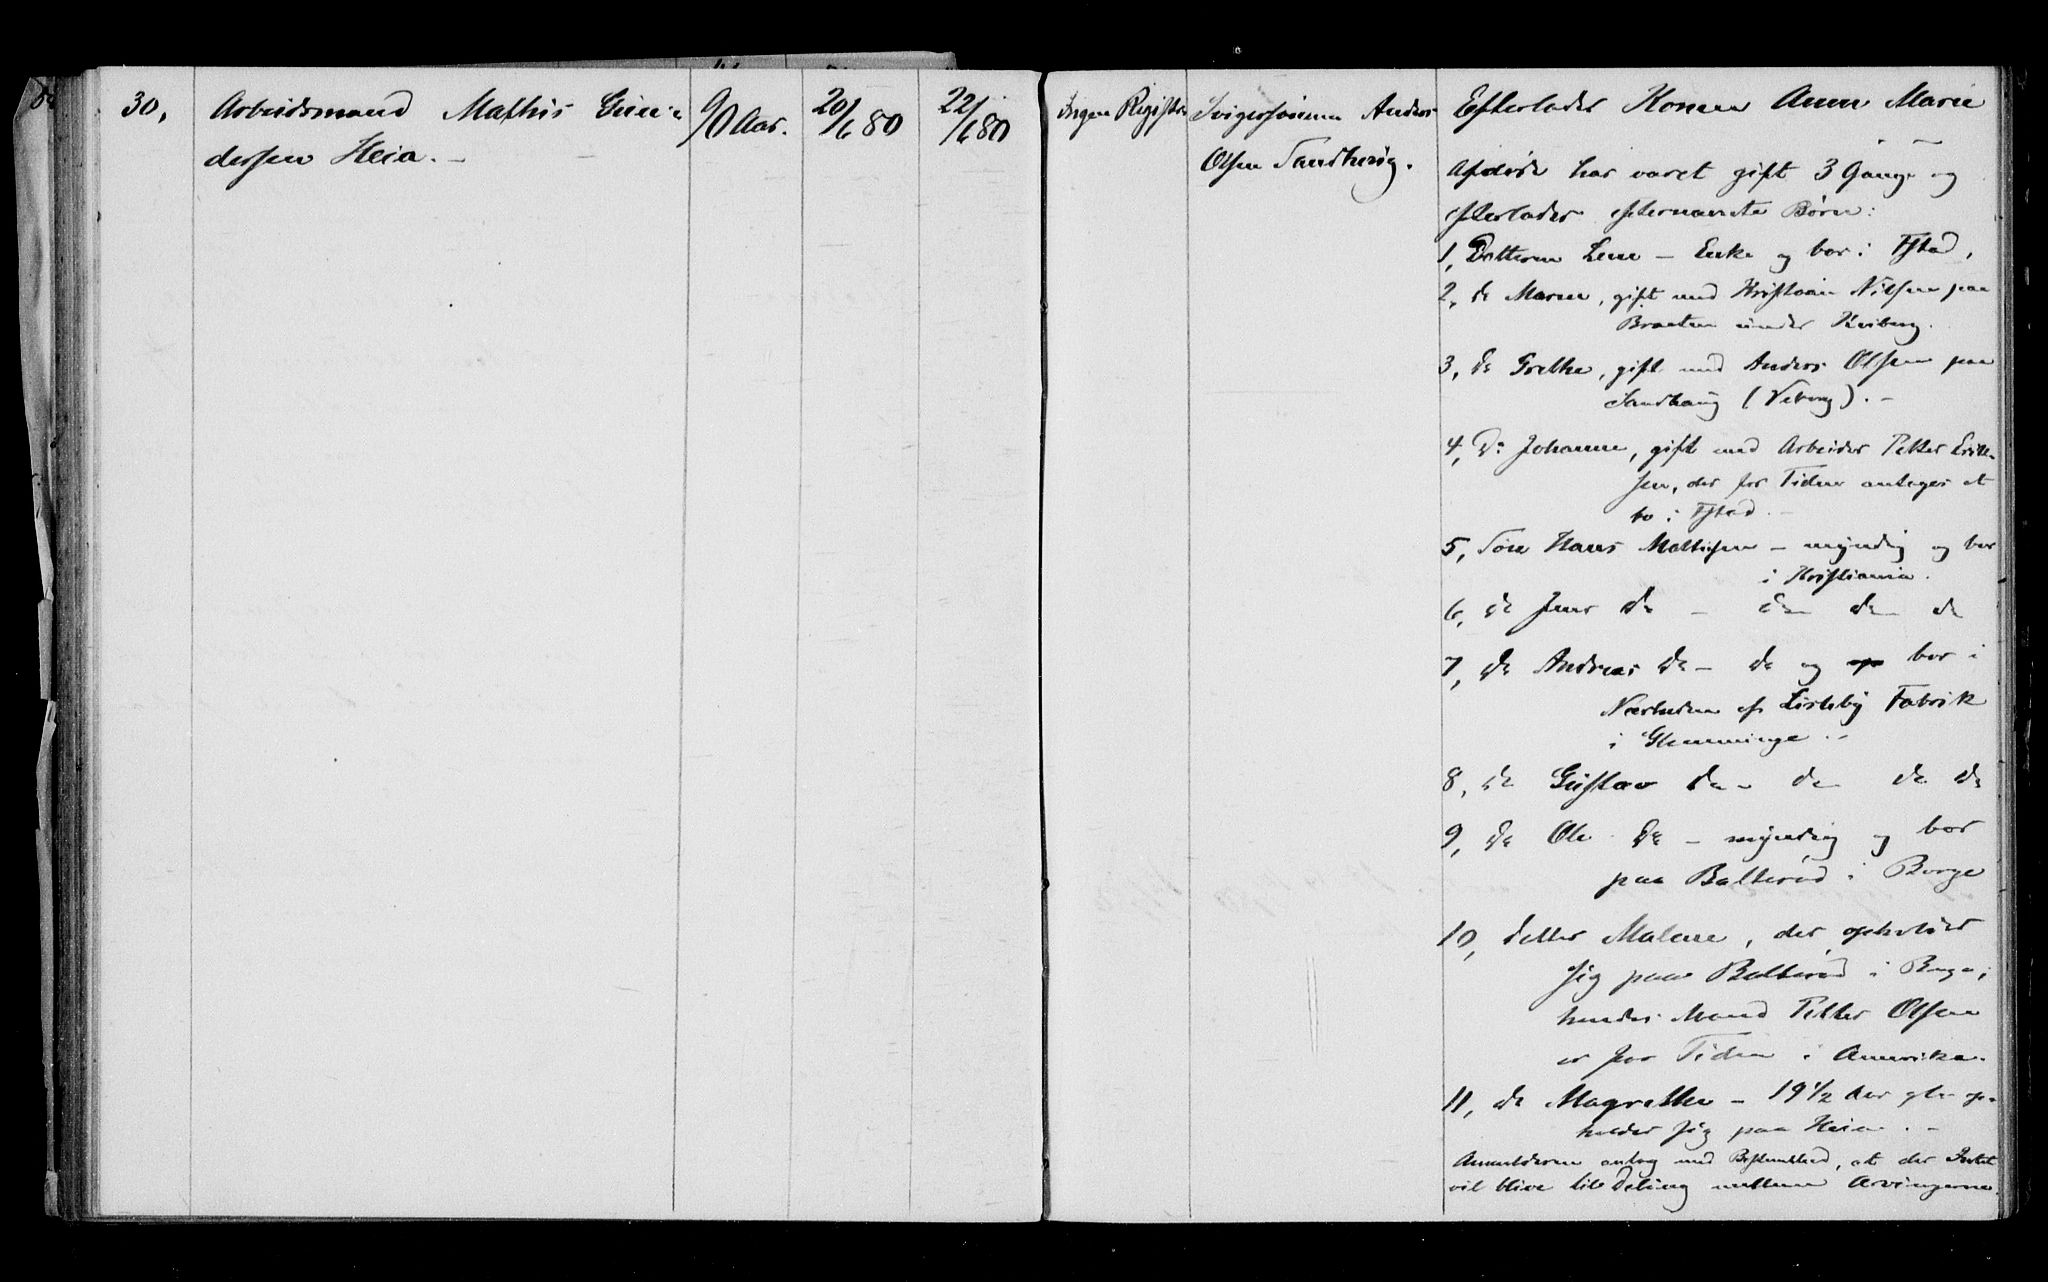 30, Arbeidsmand Mathis Gun-
dersen Heia. –
90 Aar.
20/6 80
22/6 80
Ingen Registr.
Svigersønnen Anders
Olsen Sandhaug.
Efterlader Konen Anne Marie
Afdøde har været gift 3 Gange og
efterlader efternævnte Børn:
1, Datteren Lene – Enke og bor i Fstad,
2, do Maren, gift med Kristian Nilsen paa
Braaten under Kiberg.
3, do Grethe, gift med Anders Olsen paa
Sandhaug (Veberg). –
4, Do Johanne, gift med Arbeider Petter Erik-
sen, der for Tiden antages at
bo i Fstad. –
5, Søn Hans Mathisen – myndig og bor
i Kristiania.
6, do Jens do – do do do
7, do Andreas do – do og bor i
Nærheden af Lisleby Fabrik
i Glemminge. –
8, do Gustav do – do do do
9, do Ole do – myndig og bor
paa Balterød i Borge
10, datter Malene, der opholder
sig paa Balterød i Borge;
hendes Mand Petter Olsen
er for Tiden i Amerika.
11, do Magrethe – 19 1/2 Aar gl. op-
holder sig paa Heia. –
Anmelderen antog med Bestemthed, at der Intet
vil blive til Deling mellem Arvingerne.